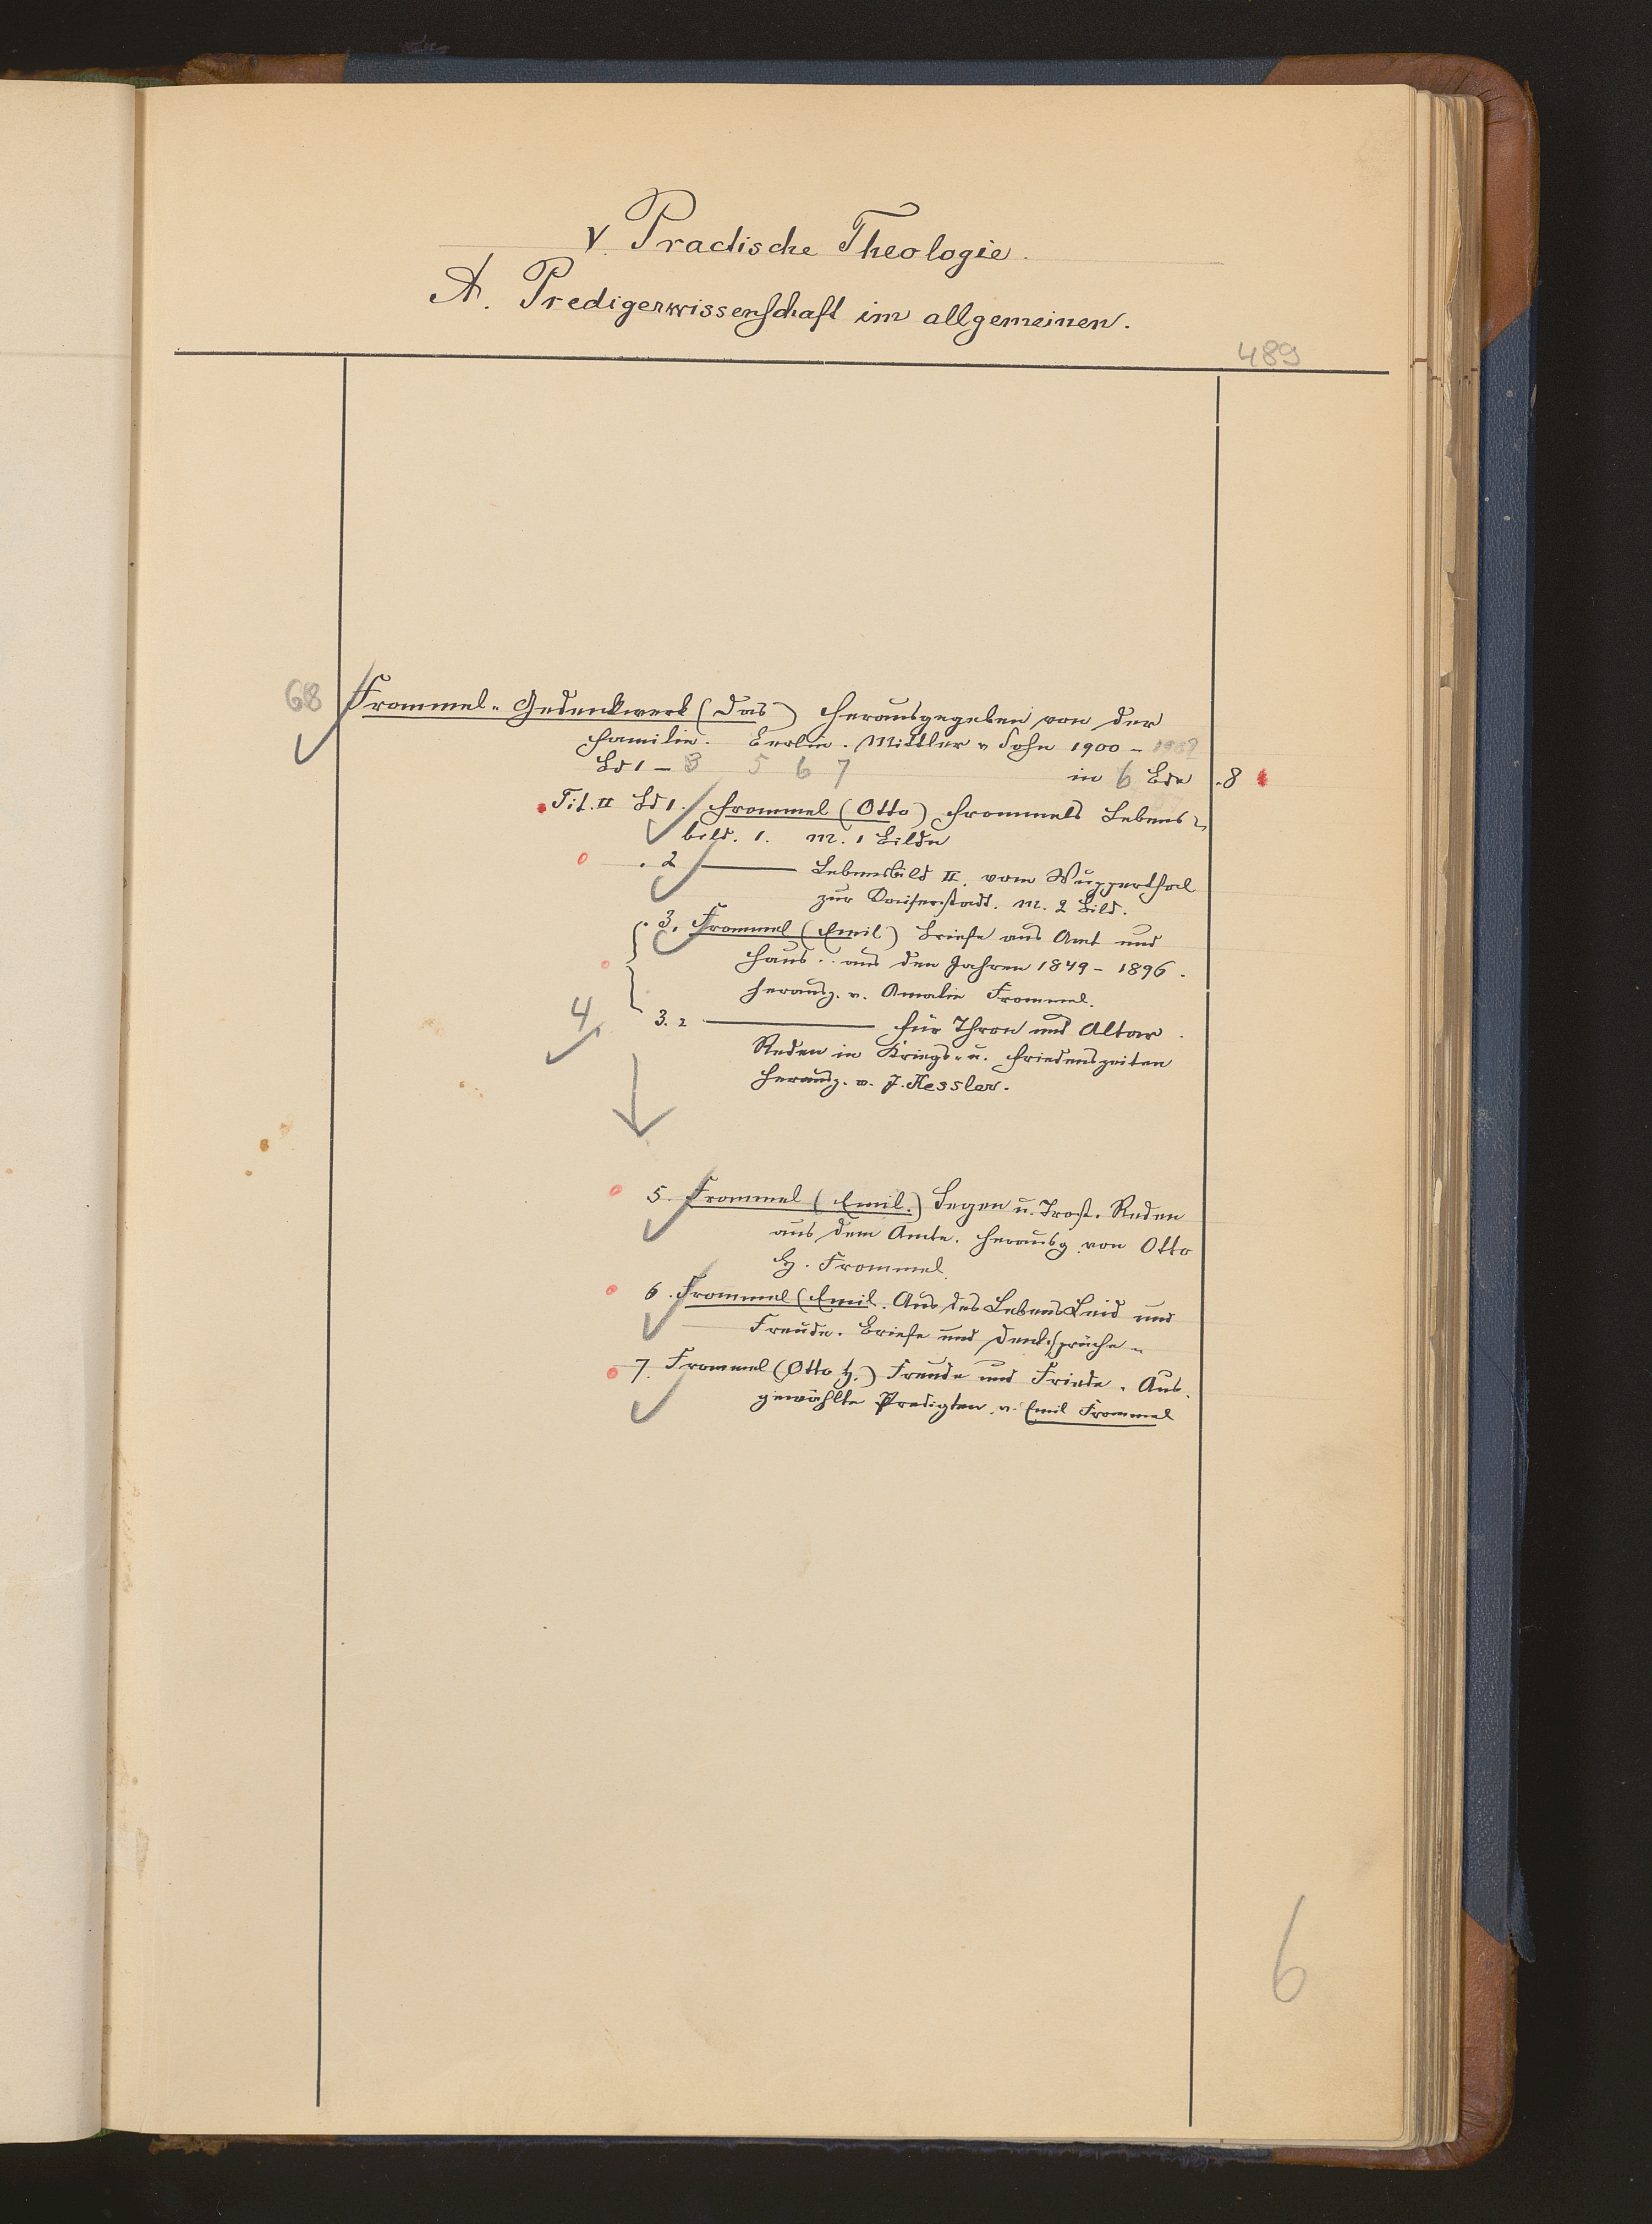 V. Practische Theologie.
A. Predigerwissenschaft im allgemeinen.
489
68 Frommel-Gedenkwerk (Das) Herausgegeben von der
Familie. Berlin. Mittler u Sohn 1900 -
Bd 1 - 3 5 6 7 in 6 Bde 8
Tit. II Bd 1. Frommel (Otto) Frommels Lebens-
bild. 1. M. 1 Bilde
2 ——— Lebensbild II. vom Wupperthal
zur Kaiserstadt. M. 2 Bild.
3. Frommel (Emil) Briefe aus Amt und
Haus .. aus den Jahren 1849 - 1896.
Herausg. v. Amalie Frommel.
4
3.2 ——— Für Thron und Altar.
Reden in Kriegs- u. Friedenszeiten
Herausg. v. J. Kessler.
5. Frommel (Emil.) Segen u. Trost. Reden
aus dem Amte. Herausg. von Otto
H. Frommel.
6. Frommel (Emil. Aus des Lebens Leid und
Freude. Briefe und Denksprüche
7. Frommel (Otto H.) Freude und Friede. Aus-
gewählte Predigten v. Emil Frommel
6